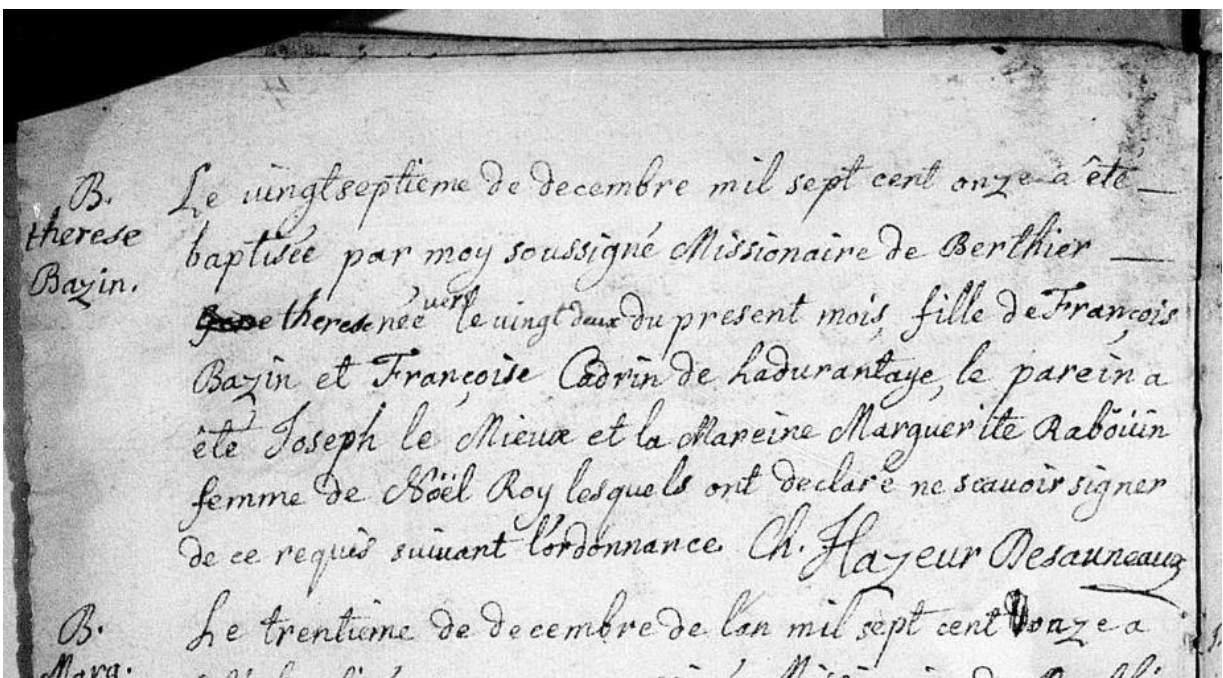 B.
therese
Bazin.
Le vingtseptieme de decembre mil sept cent onze a êté
baptisée par moy soussigné Missionaire de Berthier
therese née vers le vingt deux du present mois, fille de François
Bazin et Françoise Cadrin de Ladurantaye, le parein a
êté Joseph le Mieux et la Mareine Marguerite Raboüin
femme de Nöël Roy lesquels ont declaré ne scauoir signer
de ce requis suiuant l'ordonnance. Ch. Hazeur Desauneaux
B.
Marg.
Le trentieme de decembre de l'an mil sept cent onze a